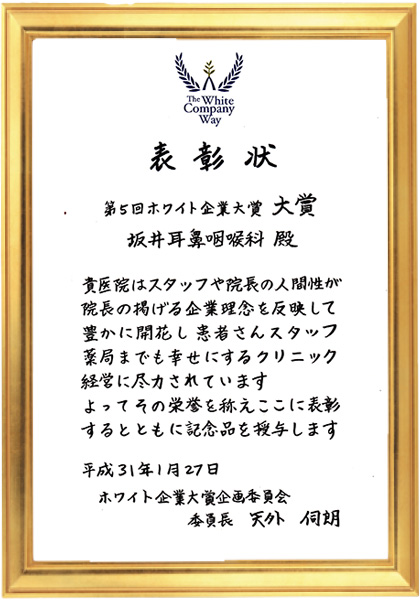 The White
Company
Way
表彰状
第5回ホワイト企業大賞 大賞
坂井耳鼻咽喉科 殿
貴医院はスタッフや院長の人間性が
院長の掲げる企業理念を反映して
豊かに開花し 患者さんスタッフ
薬局までも幸せにするクリニック
経営に尽力されています
よってその栄誉を称えここに表彰
するとともに記念品を授与します
平成31年1月27日
ホワイト企業大賞企画委員会
委員長 天外 伺朗